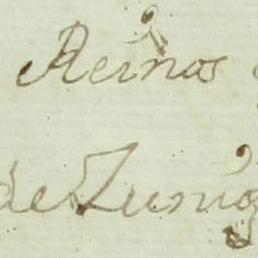 Reinos
de Zuniga